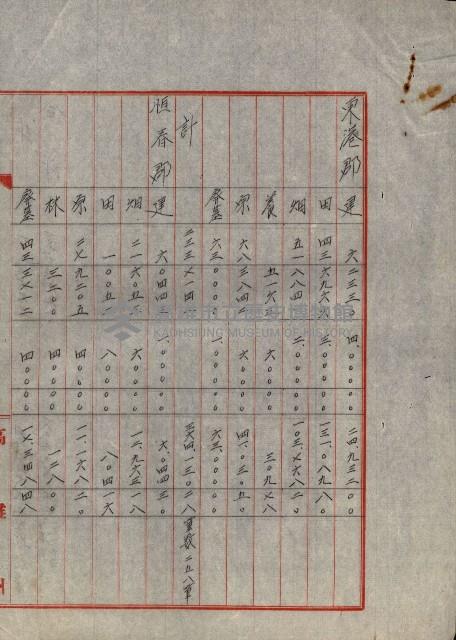 東港郡 建 六二三三〇 四、〇〇〇〇 二四、九三二〇〇
田 四三六九六 三、〇〇〇〇 一三一、〇八九八〇
畑 五一八八四 二、〇〇〇〇 一〇三、七六八〇〇
養
原 六八三八四 六〇〇〇 四一、〇三〇五〇
墓 六三〇〇〇 一、〇〇〇〇 六三、〇〇〇〇
計 二三三七一四 三六四、一三〇二八 筆数二五八筆
恒春郡 建 六〇四四 一、〇〇〇〇 六、〇四四三〇
畑 二一六〇五 六〇〇〇 一二、九六三一八
田 一〇〇五 八〇〇〇 八〇四一六
原 二七九二〇五 四〇〇〇 一一、一六八二〇
林 三二〇〇 四〇〇〇 一二八〇〇
墓 四三三七一二 四〇〇〇 一七、三四八四八
高雄州
高雄市立歷史博物館
KAOHSIUNG MUSEUM OF HISTORY